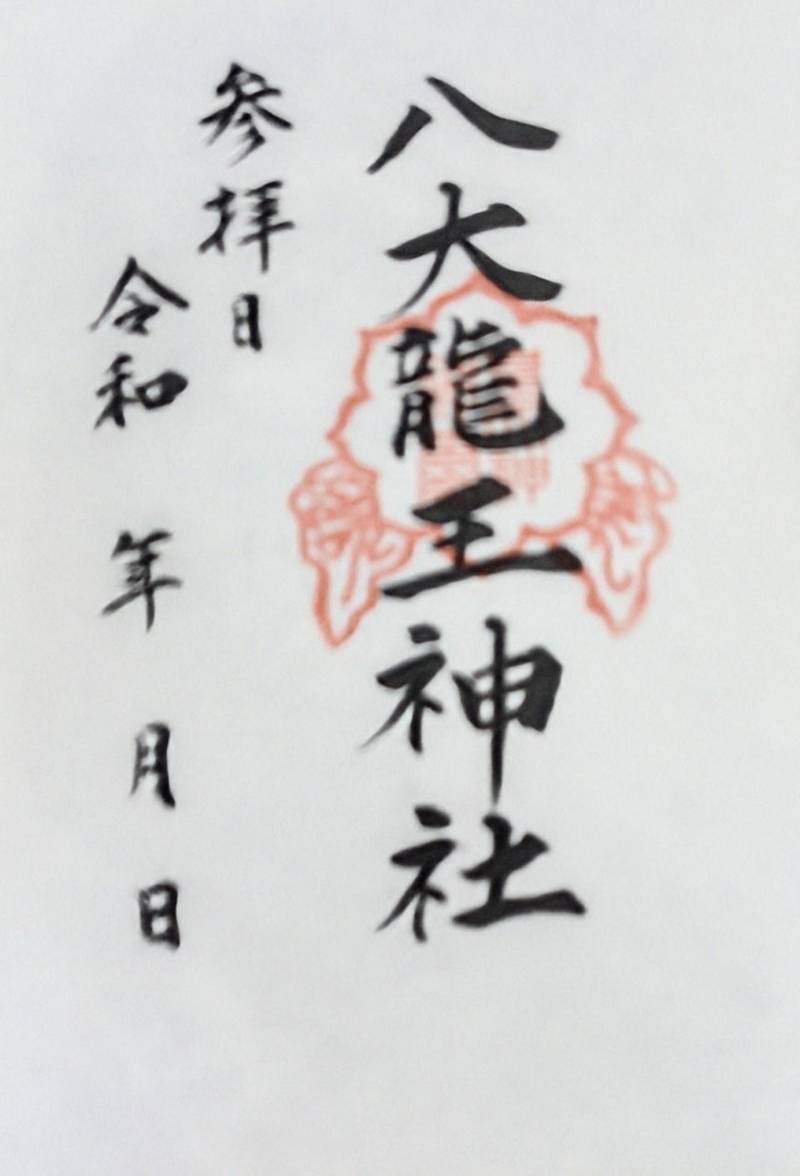 八大龍王神社
参拝日
令和 年 月 日